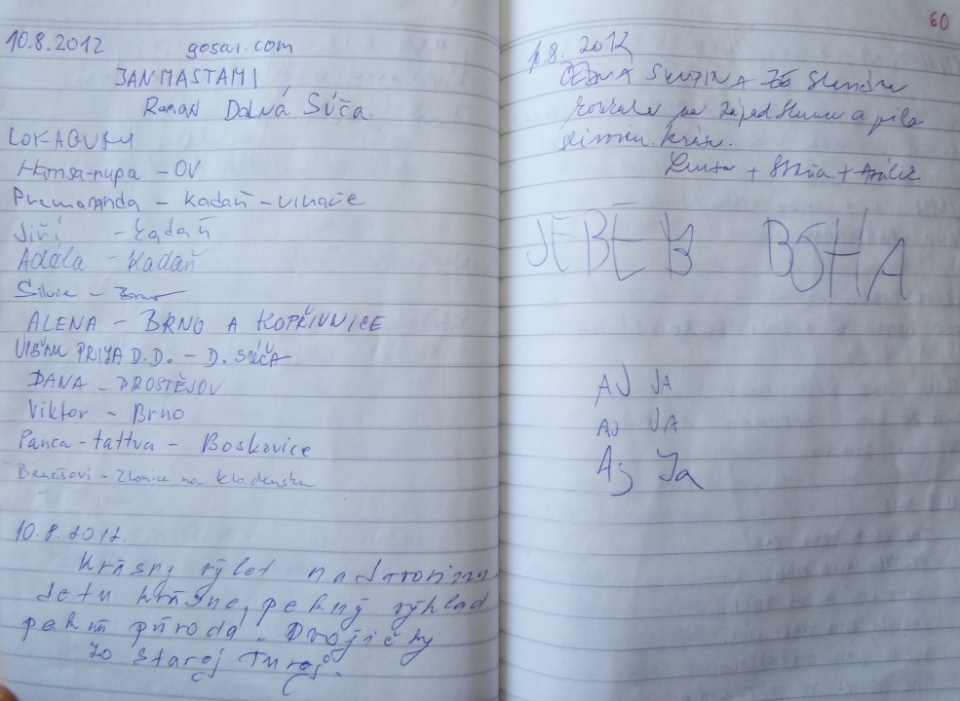 10.8.2012 gosai.com
JANMASTAMI
Roman Dolná Súča
LOKAGURU
Hamsa-rupa - OV
Premananda - Kadaň - vinaře
Jiří - Kadaň
Adéla - Kadaň
Silvie - Brno
ALENA - BRNO A KOPŘIVNICE
VIŠNU PRIJA D.D. - D. SÚČA
DANA - PROSTĚJOV
Viktor - Brno
Panca-tattva - Boskovice
Benešovi - Zlonice na Kladensku
10.8.2012.
Krásny výlet
je tu krásne, pekný výhlad
pekná príroda. Dvojičky
zo Starej Turej.
60
8. 2012
SKUPINA
na západ slnka a
+ +
JEBE
BOHA
AJ JA
AJ JA
Aj Ja